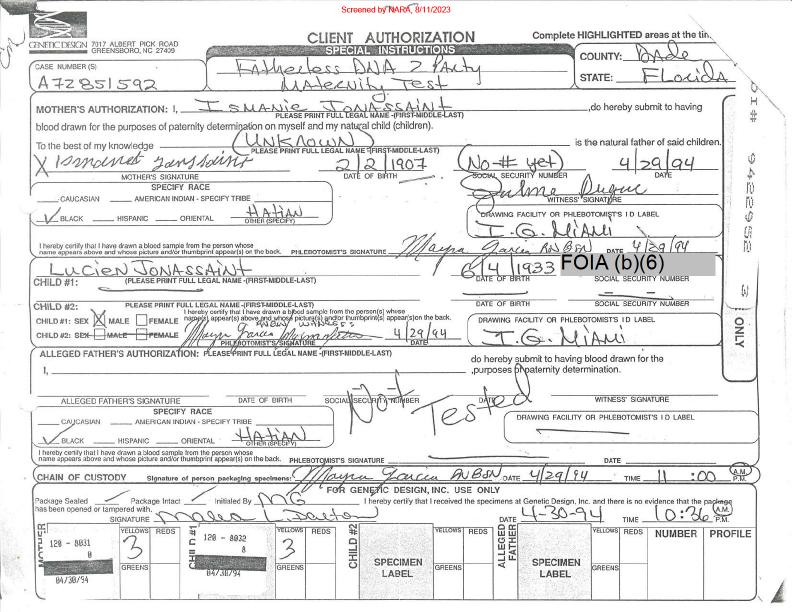 Screened by NARA, 8/11/2023
GENETIC DESIGN 7017 ALBERT PICK ROAD
GREENSBORO, NC 27409
CLIENT AUTHORIZATION
SPECIAL INSTRUCTIONS
Complete HIGHLIGHTED areas at the tim
CASE NUMBER (S)
A72851592
Fatherless DNA 2 Party
Maternity Test
COUNTY: Dade
STATE: Florida
MOTHER'S AUTHORIZATION: I, Ismanie Jonassaint ,do hereby submit to having
PLEASE PRINT FULL LEGAL NAME -(FIRST-MIDDLE-LAST)
blood drawn for the purposes of paternity determination on myself and my natural child (children).
To the best of my knowledge (UNKNOWN) is the natural father of said children.
PLEASE PRINT FULL LEGAL NAME -(FIRST-MIDDLE-LAST)
X 2/2/1907 (No-# yet) 4/29/94
MOTHER'S SIGNATURE DATE OF BIRTH SOCIAL SECURITY NUMBER DATE
SPECIFY RACE
CAUCASIAN AMERICAN INDIAN - SPECIFY TRIBE
BLACK HISPANIC ORIENTAL Hatian
OTHER (SPECIFY)
WITNESS' SIGNATURE
DRAWING FACILITY OR PHLEBOTOMIST'S I D LABEL
I.G. MIAMI
I hereby certify that I have drawn a blood sample from the person whose
name appears above and whose picture and/or thumbprint appear(s) on the back. PHLEBOTOMIST'S SIGNATURE Mayra Garcia RN BSN DATE 4/29/94
LUCIEN JONASSAINT 6/4/1933 FOIA (b)(6)
CHILD #1: (PLEASE PRINT FULL LEGAL NAME -(FIRST-MIDDLE-LAST) DATE OF BIRTH SOCIAL SECURITY NUMBER
CHILD #2: PLEASE PRINT FULL LEGAL NAME -(FIRST-MIDDLE-LAST) DATE OF BIRTH SOCIAL SECURITY NUMBER
I hereby certify that I have drawn a blood sample from the person(s) whose
name(s) appear(s) above and whose picture and/or thumbprint(s) appear(s) on the back.
CHILD #1: SEX X MALE FEMALE
CHILD #2: SEX MALE FEMALE Mayra Garcia 4/29/94
PHLEBOTOMIST'S SIGNATURE DATE
DRAWING FACILITY OR PHLEBOTOMIST'S I D LABEL
I.G. MIAMI
ALLEGED FATHER'S AUTHORIZATION: PLEASE PRINT FULL LEGAL NAME -(FIRST-MIDDLE-LAST)
I, do hereby submit to having blood drawn for the
,purposes of paternity determination.
Not Tested
ALLEGED FATHER'S SIGNATURE DATE OF BIRTH SOCIAL SECURITY NUMBER DATE WITNESS' SIGNATURE
SPECIFY RACE
CAUCASIAN AMERICAN INDIAN - SPECIFY TRIBE
BLACK HISPANIC ORIENTAL Hatian
OTHER (SPECIFY)
DRAWING FACILITY OR PHLEBOTOMIST'S I D LABEL
I hereby certify that I have drawn a blood sample from the person whose
name appears above and whose picture and/or thumbprint appear(s) on the back. PHLEBOTOMIST'S SIGNATURE DATE
CHAIN OF CUSTODY Signature of person packaging specimens: Mayra Garcia RN BSN DATE 4/29/94 TIME 11:00 A.M. P.M.
FOR GENETIC DESIGN, INC. USE ONLY
Package Sealed Package Intact Initialed By MG I hereby certify that I received the specimens at Genetic Design, Inc. and there is no evidence that the package
has been opened or tampered with.
SIGNATURE DATE 4-30-94 TIME 10:36 A.M. P.M.
MOTHER 120 - 8031 0 04/30/94 YELLOWS 3 REDS GREENS
CHILD #1 120 - 8032 8 04/30/94 YELLOWS 3 REDS GREENS
CHILD #2 SPECIMEN LABEL YELLOWS REDS GREENS
ALLEGED FATHER SPECIMEN LABEL YELLOWS REDS GREENS
NUMBER PROFILE
ONLY